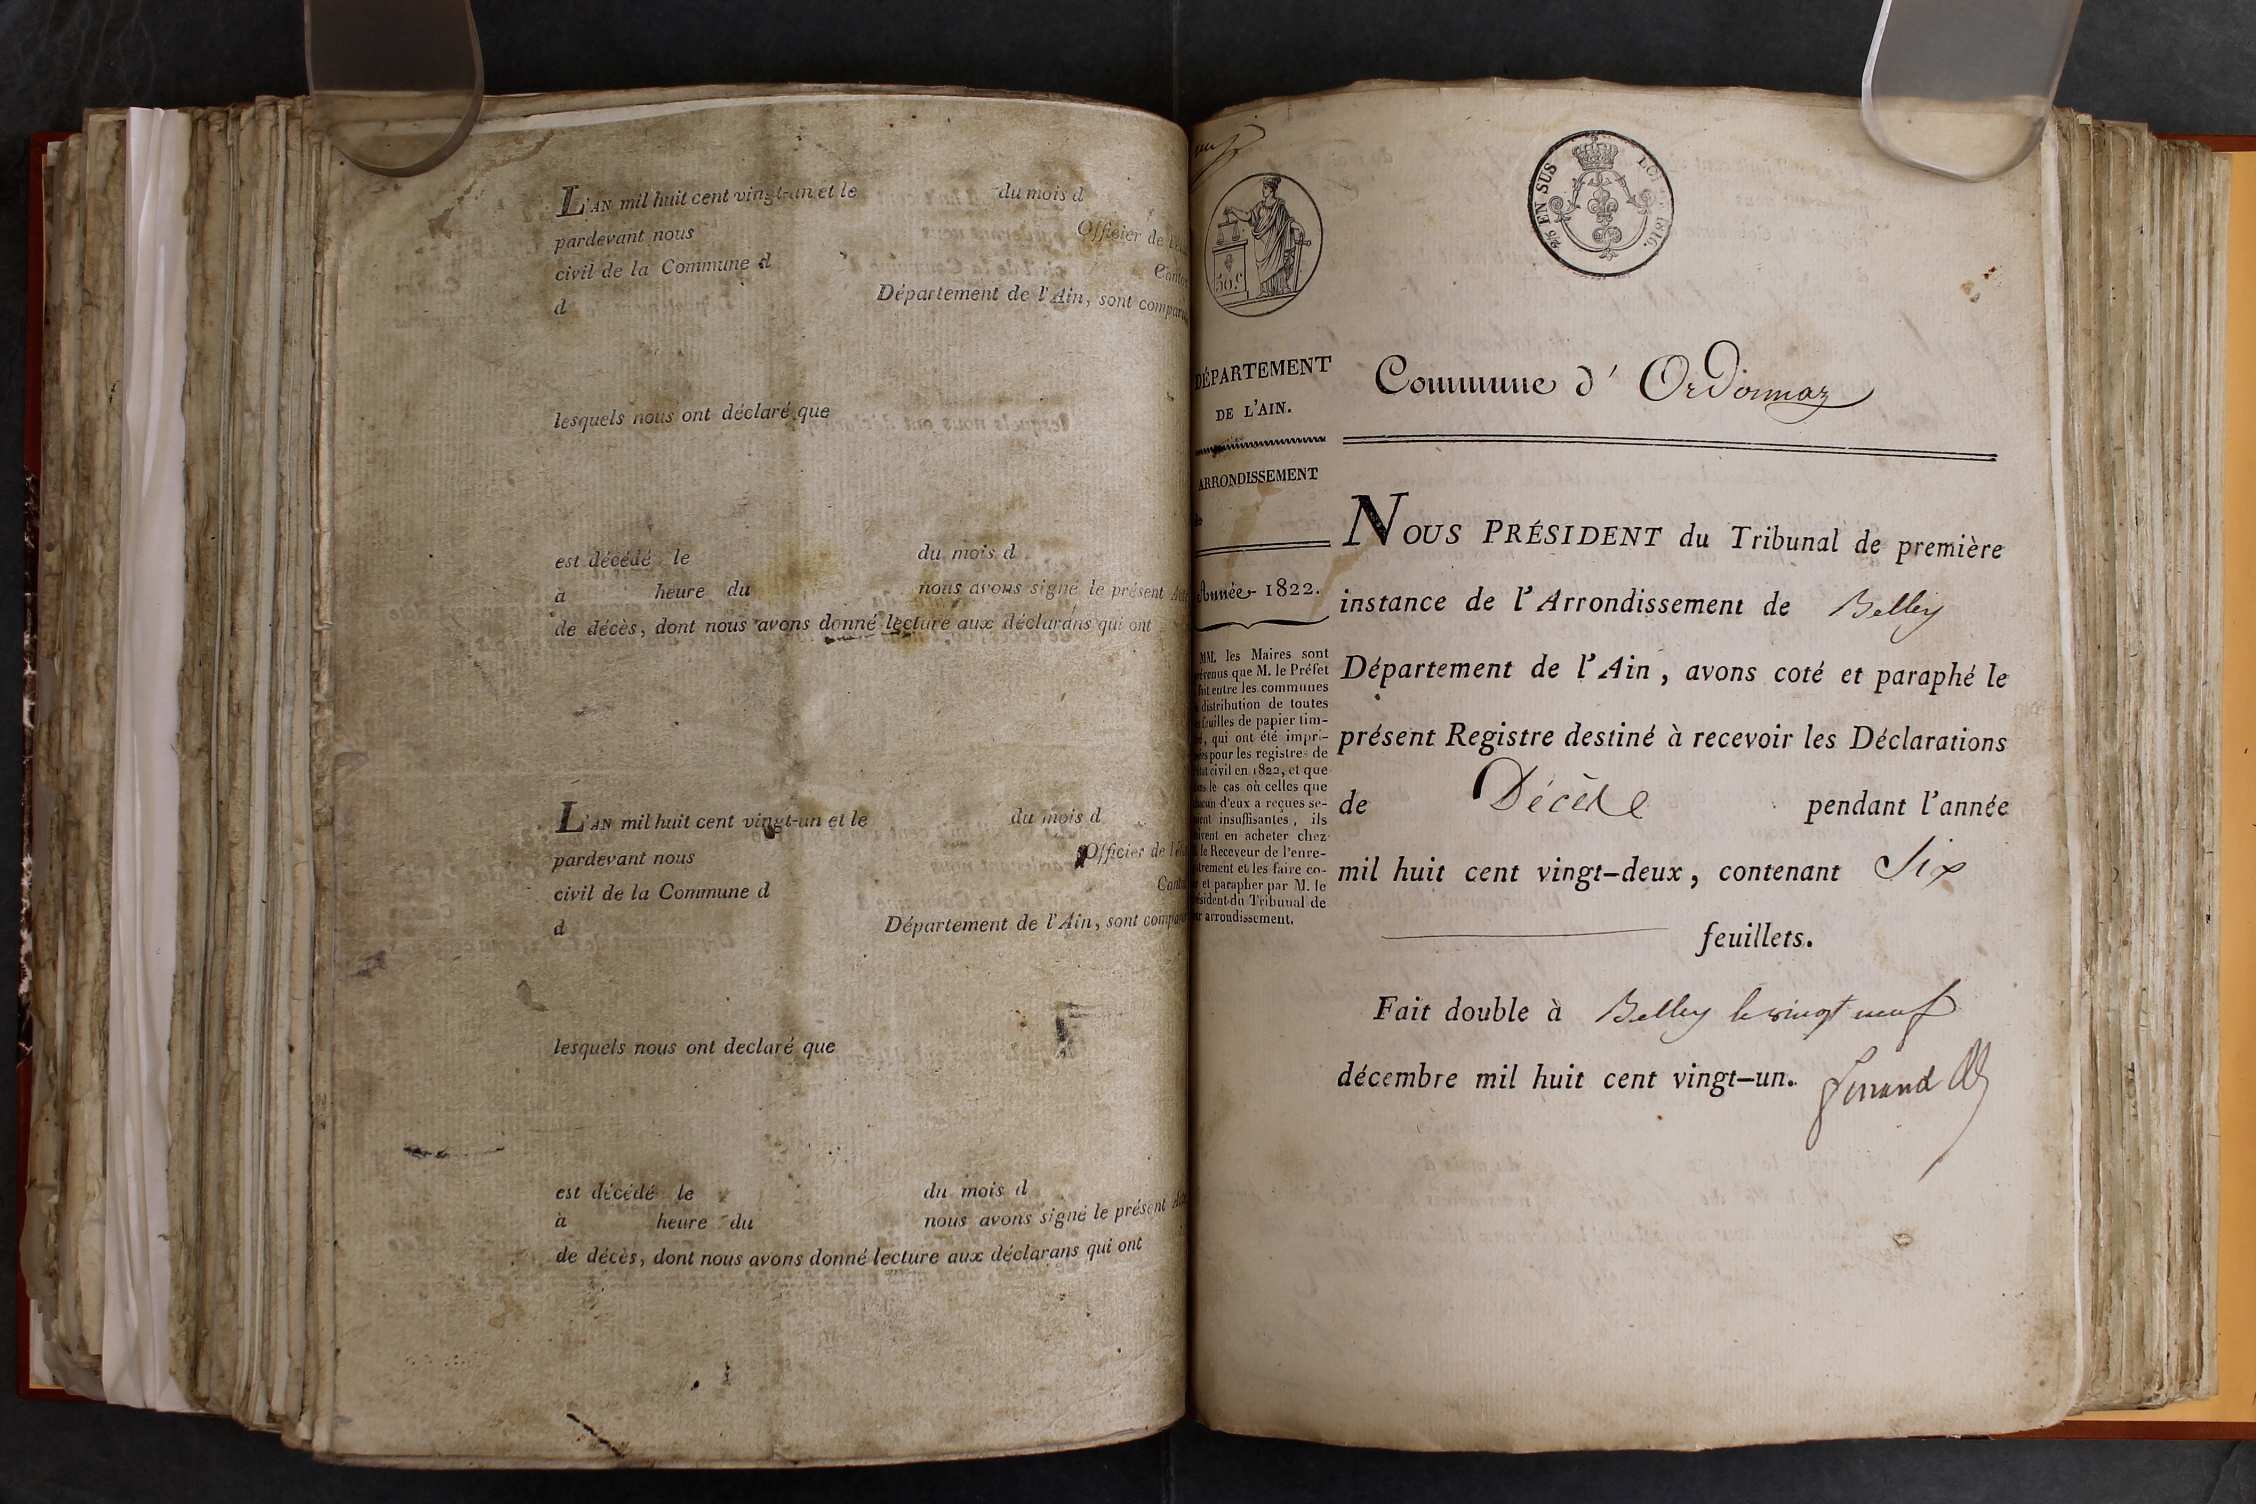 L'AN mil huit cent vingt-un et le du mois d
pardevant nous Officier de l'é
civil de la Commune d Canton
d Département de l'Ain, sont compar
lesquels nous ont déclaré que
est décédé le du mois d
à heure du nous avons signé le présent
de décès, dont nous avons donné lecture aux déclarans qui ont
L'AN mil huit cent vingt-un et le du mois d
pardevant nous Officier de l'é
civil de la Commune d Canto
d Département de l'Ain, sont compar
lesquels nous ont declaré que
est décédé le du mois d
à heure du nous avons signé le présent
de décès, dont nous avons donné lecture aux déclarans qui ont
50 c
EN SUS LOI 1816.
DÉPARTEMENT
DE L'AIN.
ARRONDISSEMENT
de
Année 1822.
MM. les Maires sont
évenus que M. le Préfet
fait entre les communes
distribution de toutes
feuilles de papier tim-
é, qui ont été impri-
es pour les registres de
état civil en 1822, et que
ns le cas où celles que
acun d'eux a reçues se-
ent insuffisantes, ils
ivent en acheter chez
le Receveur de l'enre-
trement et les faire co-
r et parapher par M. le
ésident du Tribunal de
ur arrondissement.
Commune d' Ordonnaz
NOUS PRÉSIDENT du Tribunal de première
instance de l'Arrondissement de Belley
Département de l'Ain, avons coté et paraphé le
présent Registre destiné à recevoir les Déclarations
de Décès pendant l'année
mil huit cent vingt-deux, contenant Six
feuillets.
Fait double à Belley le vingt neuf
décembre mil huit cent vingt-un.